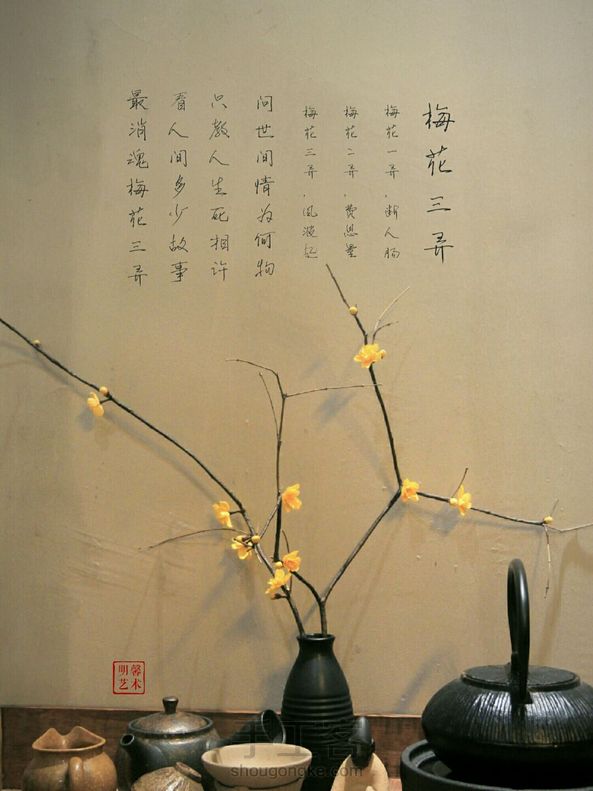 梅花三弄
梅花一弄，断人肠
梅花二弄，费思量
梅花三弄，风波起
问世间情为何物
只教人生死相许
看人间多少故事
最消魂梅花三弄
明馨
艺术
手工客
shougongke.com